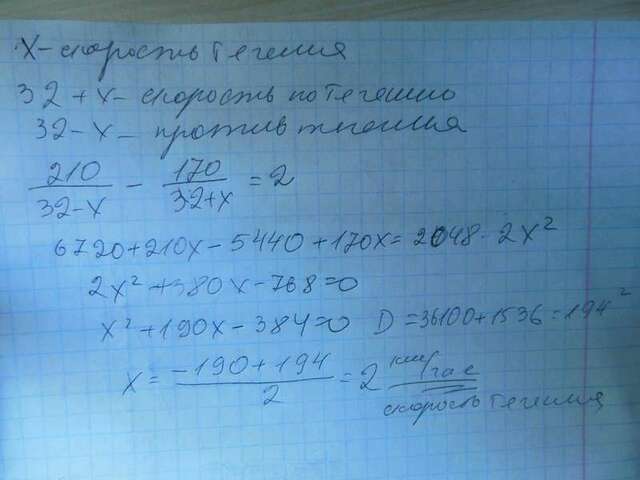 x - скорость течения
32 + x - скорость по течению
32 - x - против течения
210/(32-x) - 170/(32+x) = 2
6720 + 210x - 5440 + 170x = 2048 - 2x²
2x² + 380x - 768 = 0
x² + 190x - 384 = 0 D = 36100 + 1536 = 194²
x = (-190 + 194)/2 = 2 км/час
скорость течения